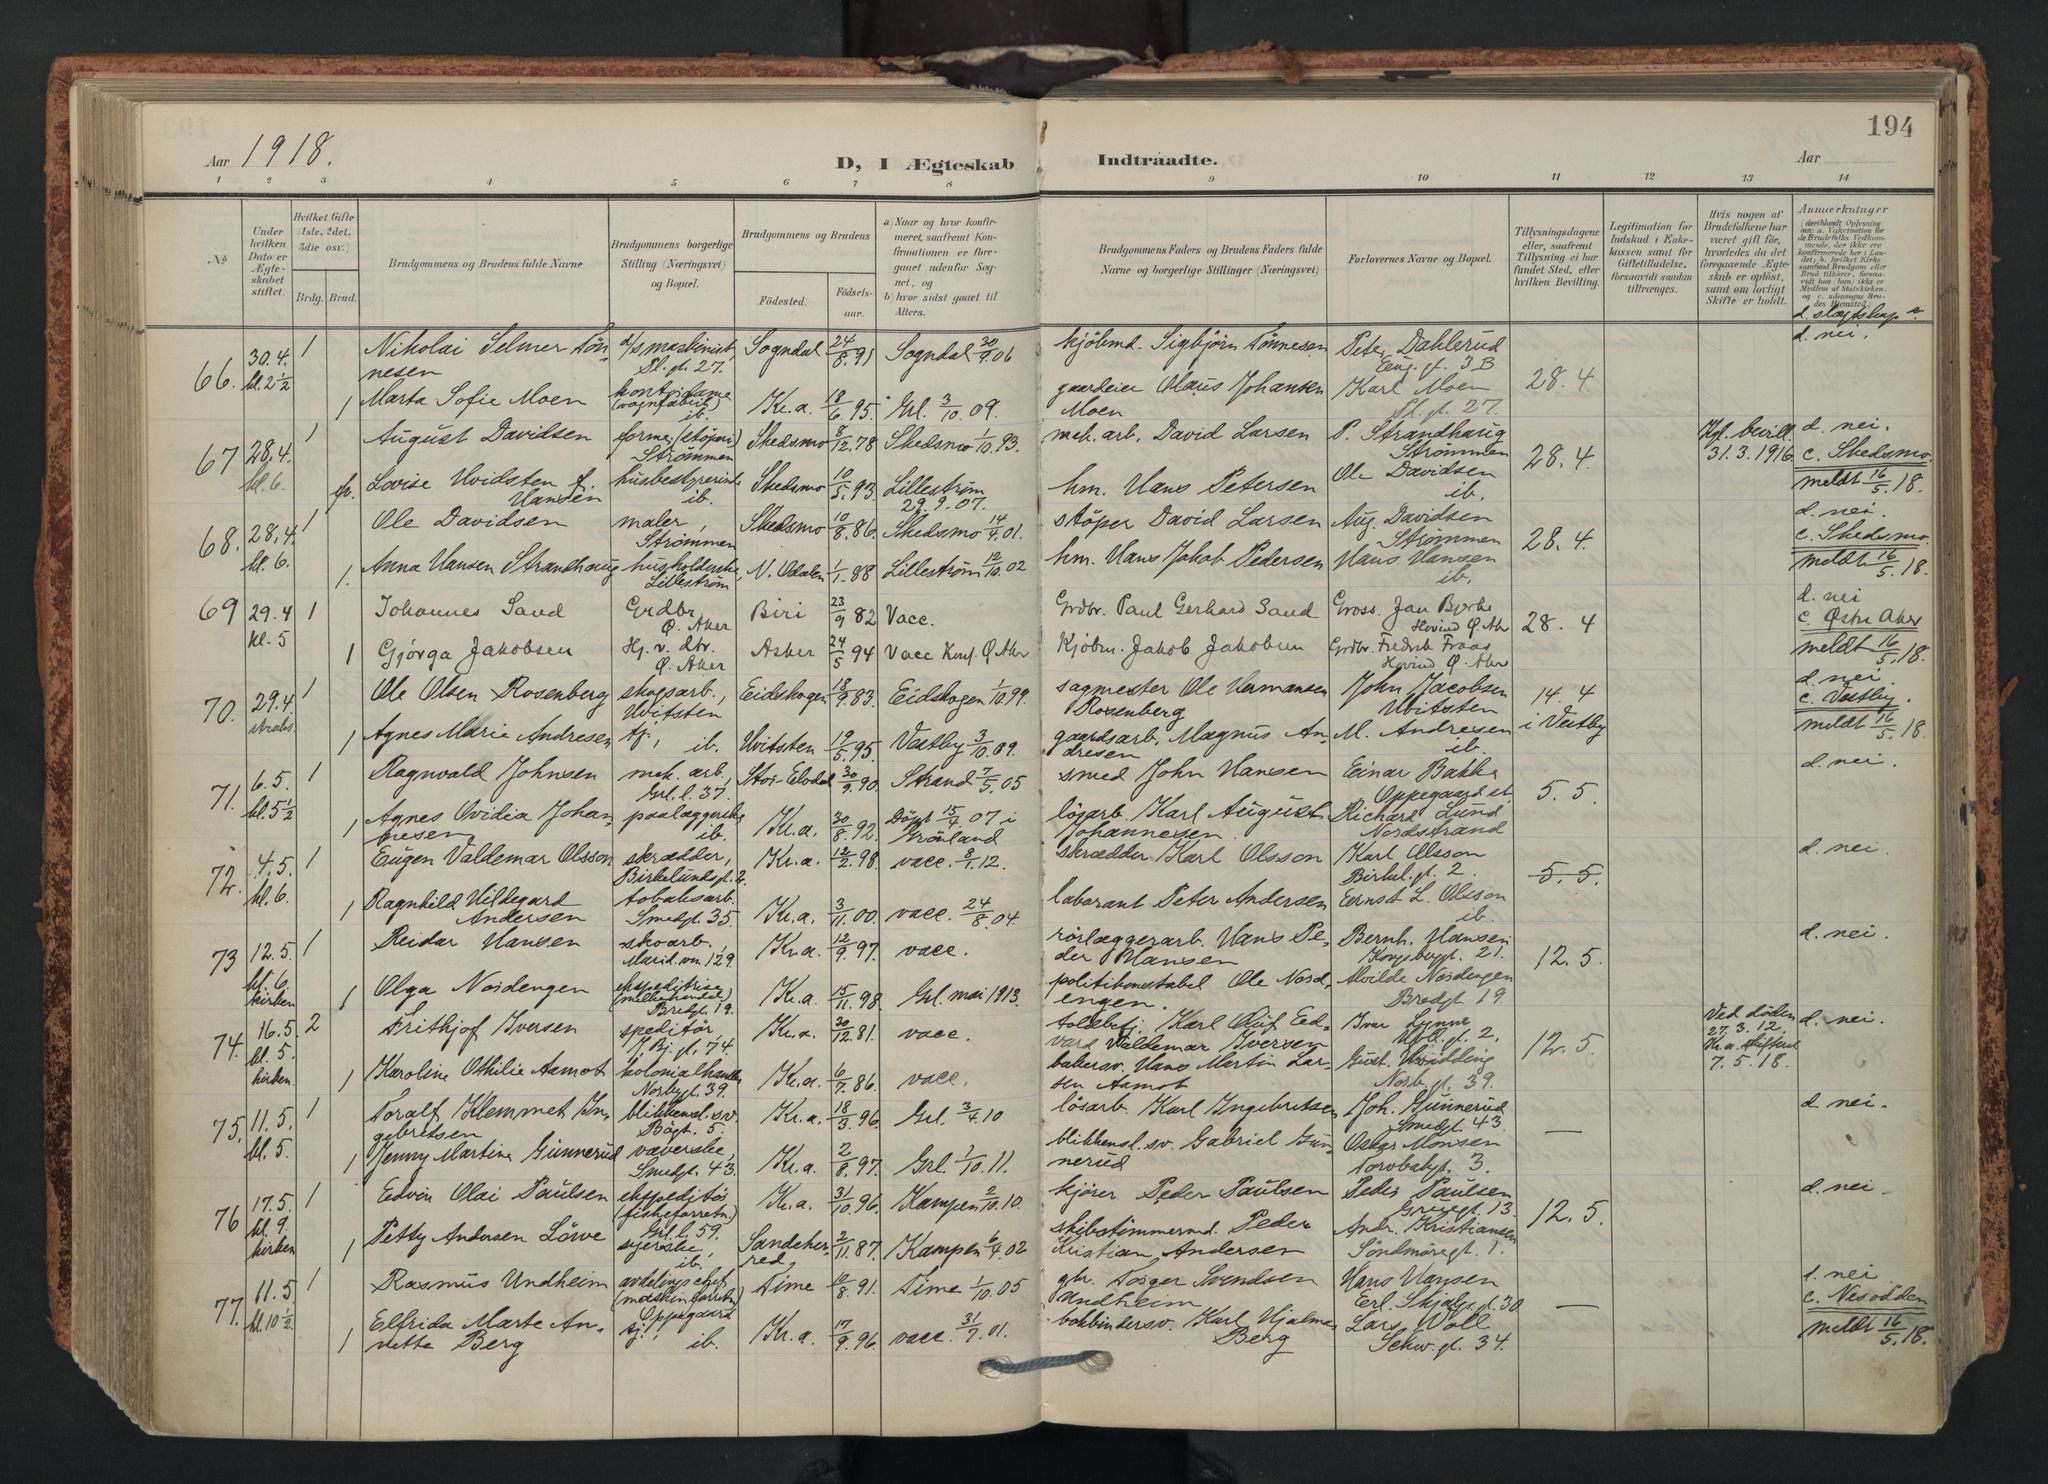 194
Aar 1918.
D, I Ægteskab Indtraadte.
Aar
1 2 3 4 5 6 7 8 9 10 11 12 13 14
No
Under hvilken Dato er Ægteskabet stiftet.
Hvilket Gifte (1ste, 2det, 3die osv.)
Brdg. Brud.
Brudgommens og Brudens fulde Navne
Brudgommens borgerlige Stilling (Næringsvei) og Bopæl.
Brudgommens og Brudens
Födested. Födselsaar.
a) Naar og hvor konfirmeret, saafremt Konfirmationen er foregaaet udenfor Sognet, og
b) hvor sidst gaaet til Alters.
Brudgommens Faders og Brudens Faders fulde Navne og borgerlige Stillinger (Næringsvei)
Forlovernes Navne og Bopæl.
Tillysningsdagene eller, saafremt Tillysning ei har fundet Sted, efter hvilken Bevilling.
Legitimation for Indskud i Enkekassen samt for Giftetilladelse, forsaavidt saadan tiltrænges.
Hvis nogen af Brudefolkene har været gift för, hvorledes da det foregaaende Ægteskab er oplöst, samt om lovligt Skifte er holdt.
Anmærkninger
d. slægtskap
66. 30.4. kl. 2½ 1 Nikolai Selmer Tönnesen d/s maskinist, Sl. gt. 27. Sogndal 24/8.91 Sogndal 30/9.06 kjöbmd. Sigbjörn Tönnesen Peter Dahlerud Eug. gt. 3B 28.4. d. nei.
1 Marta Sofie Moen kontordame (vognfabrik) ib. Kr.a. 18/6.95 Grl. 3/10.09. gaardeier Olaus Johansen Moen Karl Moen Sl. gt. 27.
67 28.4. kl. 6. 1 August Davidsen former (stöperi) Strömmen Skedsmo 8/12.78 Skedsmo 1/10.93 mek. arb. David Larsen P. Strandhaug Strömmen 28.4. Kgl. bevill. 31.3.1916 d. nei. c. Skedsmo.
fr. Lovise Hvidsten f. Hansen husbestyrerinde ib. Skedsmo 10/5.93. Lilleström 29.9.07. hm. Hans Petersen Ole Davidsen ib. meldt 16/5.18.
68. 28.4. kl. 6. 1 Ole Davidsen maler, Strömmen Skedsmo 10/8.86 Skedsmo 14/4.01. stöper David Larsen Aug. Davidsen Strömmen 28.4. d. nei. c. Skedsmo.
1. Anna Hansen Strandhaug husholderske, Lilleström N. Odalen 1/1.88 Lilleström 12/10.02 hm. Hans Jakob Pedersen Hans Hansen ib. meldt 16/5.18.
69 29.4 kl. 5 1 Johannes Sand Grdbr. Ø. Aker Biri 23/9 82 Vacc. Grdbr. Paul Gerhard Sand Gross. Jan Bjerke Hovind Ø. Aker 28.4 d. nei c. Østre Aker
1 Gjörga Jakobsen Hj. v. dtr. Ø. Aker Asker 24/5 94 Vacc Konf. Ø. Aker Kjöbm. Jakob Jakobsen Grdbr. Fredrik Fraas Hovind Ø. Aker meldt 16/5.18.
70. 29.4. 1 Ole Olsen Rosenberg skogsarb., Hvitsten Eidskogen 18/9.83. Eidskogen 1/10.99. sagmester Ole Hermansen Rosenberg John Jacobsen Hvitsten 14.4 i Vestby d. nei. c. Vestby.
1 Agnes Marie Andresen tj., ib. Hvitsten 19/5.95. Vestby 3/10.09. gaardsarb. Magnus Andresen M. Andresen ib. meldt 16/5.18.
71. 6.5. kl. 5½ 1 Ragnvald Johnsen mek. arb., Grl. l. 37. Stor-Elvdal 30/9.90. Strand 7/5.05 smed John Hansen Einar Bakke Oppegaard st. 5.5. d. nei.
1 Agnes Ovidia Johannesen paalæggerske ib. Kr.a. 30/8.92 Döpt 15/7 07 i Grönland lösarb. Karl August Johannesen Richard Lund Nordstrand
72. 4.5. kl. 6. 1 Eugen Valdemar Olsson skrædder, Birkelundsgt. 2. Kr.a. 12/2.98. vacc. 8/1.12. skrædder Karl Olsson Karl Olsson Birkel. gt. 2. 5.5. d. nei.
1 Ragnhild Hildegard Andersen tobaksarb. Smedgt. 35. Kr.a. 3/11.00. vacc. 24/8.04. laborant Peter Andersen Ernst L. Olsson ib.
73 12.5. kl. 6. kirken 1 Reidar Hansen skoarb. Marid. vn. 129. Kr.a 12/9.97. vacc. rörlæggerarb. Hans Peder Hansen Bernh. Hansen Kongsbergt. 21. 12.5. d. nei.
1 Olga Nordengen ekspeditrice (melkehandel) Bredgt. 19. Kr.a. 15/11.98. Grl. mai 1913. politikonstabel Ole Nordengen. Alvilde Nordengen Bredgt 19.
74. 16.5. kl. 5. kirken 2 Frithjof Iversen speditör, Kr.a. 30/12.81. vacc. toldbetj. Karl Oluf Edvard Valdemar Iversen Ivar Lynne 12.5. Ved döden 27.3.12. Kr.a. skifteret 7.5.18. d. nei.
1 Karoline Othilie Aamot kolonialhandl. Norbygt. 39. Kr.a. 6/7.86. vacc. bakersv. Hans Martin Larsen Aamot Gust. Hvidding Norb. gt. 39.
75. 11.5. kl. 5. 1 Toralf Klemmet Ingebretsen blikkensl. sv. Bögt. 5. Kr.a. 18/3.96. Grl. 3/4.10 lösarb. Karl Ingebretsen Joh. Gunnerud Smedgt. 43. — d. nei.
1 Jenny Martine Gunnerud væverske, Smedgt. 43. Kr.a. 2/8.97. Grl. 1/10.11. blikkensl. sv. Gabriel Gunnerud Oskar Monsen Torvbakgt. 3.
76 17.5. kl. 9. kirken 1 Edvin Olai Paulsen ekspeditör (fiskeforretn.) Grl. l. 59. Kr.a. 31/10.96. Kampen 2/10.10. kjörer Peder Paulsen Peder Paulsen Grüegt. 13. 12.5. d. nei.
1 Petty Andersen Lörve syerske, ib. Sandeherred, 2/11.87. Kampen 6/4.02 skibstömmermd. Peder Kristian Andersen Andr. Kristiansen Söndmöregt. 1.
77. 11.5. kl. 10½ 1 Rasmus Undheim avdelingschef (maskinforretn.) Oppegaard Time 10/8.91. Time 1/10.05 gbr. Torger Svendsen Undheim Hans Hansen Erl. Skjalgs. gt. 30. — d. nei c. Nesodden
1 Elfrida Marte Annette Berg sy. ib. Kr.a. 17/9.96. vacc. 31/7.01. bokbindersv. Karl Hjalmar Berg Lars Woll Schw. gt. 34. meldt 16/5.18.